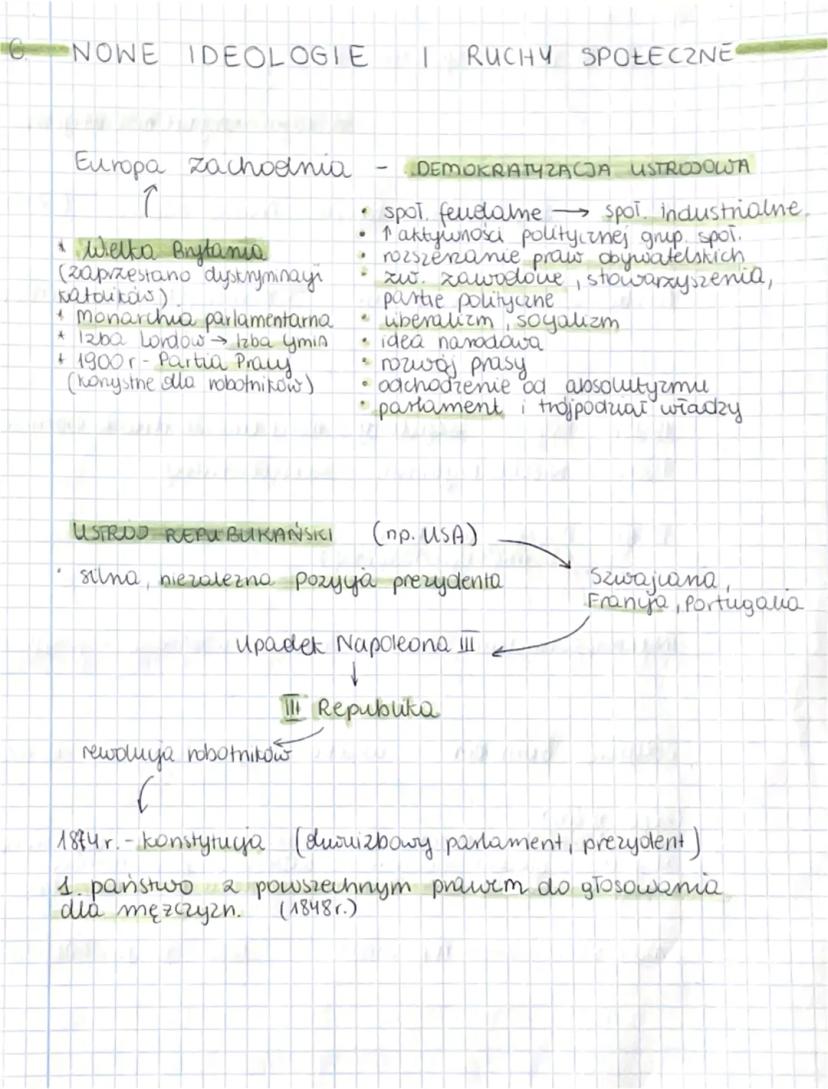 6 NOWE IDEOLOGIE I RUCHY SPOŁECZNE
Europa zachodnia - DEMOKRATYZACJA USTROJOWA
↑
* Wielka Brytania
(zaprzestano dyskryminacji
katolików)
* monarchia parlamentarna
* Izba Lordów → Izba Gmin
* 1900 r - Partia Pracy
(korzystne dla robotników)
• społ. feudalne → społ. industrialne.
• ↑ aktywności politycznej grup. społ.
• rozszerzanie praw obywatelskich
• zw. zawodowe, stowarzyszenia,
partie polityczne
• liberalizm, socjalizm
• idea narodowa
• rozwój prasy
• odchodzenie od absolutyzmu
• parlament i trójpodział władzy
USTRÓJ REPUBLIKAŃSKI (np. USA)
• silna, niezależna pozycja prezydenta
Szwajcaria,
Francja, Portugalia
Upadek Napoleona III
↓
III Republika
rewolucja robotników
1874 r. - konstytucja (dwuizbowy parlament, prezydent)
1. państwo z powszechnym prawem do głosowania
dla mężczyzn. (1848r.)